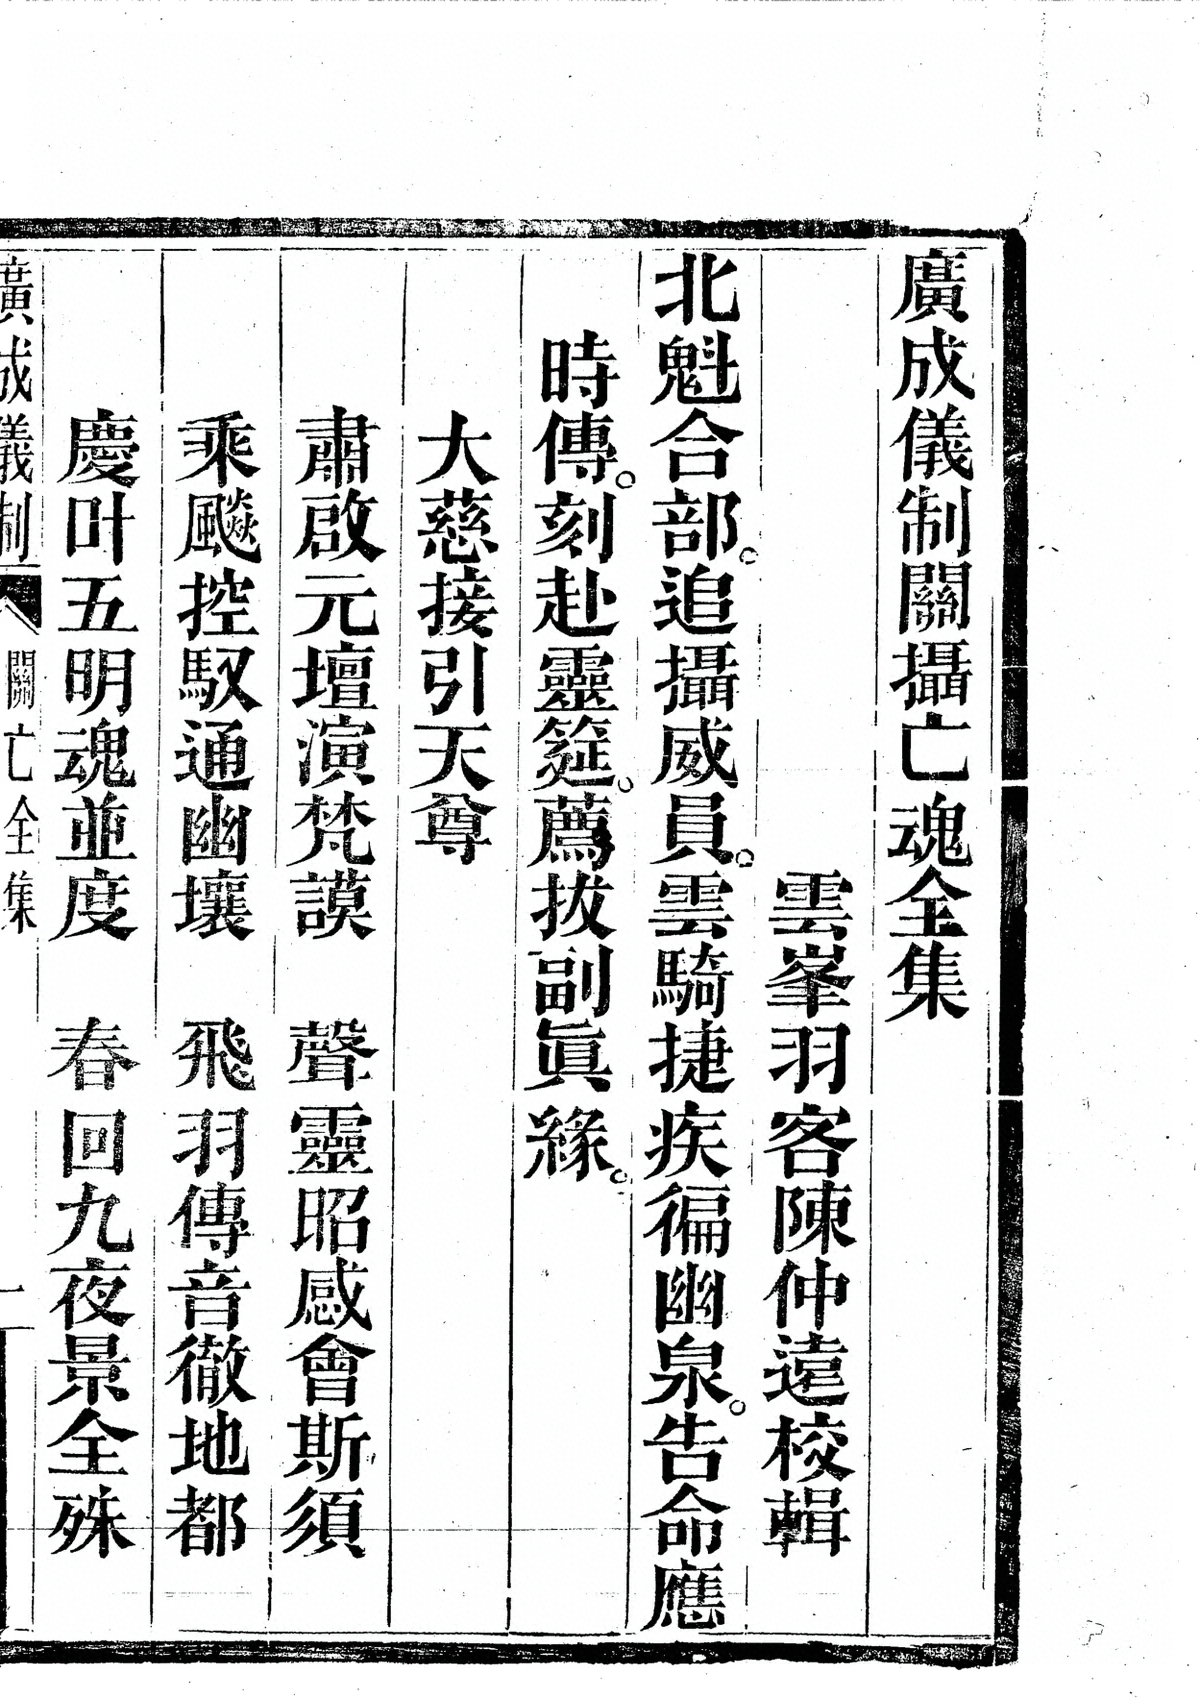 廣成儀制關攝亡魂全集
雲峯羽客陳仲遠校輯
北魁合部。追攝威員。雲騎捷疾徧幽泉。告命應
時傳。刻赴靈筵。薦拔副眞緣。
大慈接引天尊
肅啟元壇演梵謨　聲靈昭感會斯須
乘飈控馭通幽壤　飛羽傳音徹地都
慶叶五明魂並度　春回九夜景全殊
廣成儀制　關亡全集　一